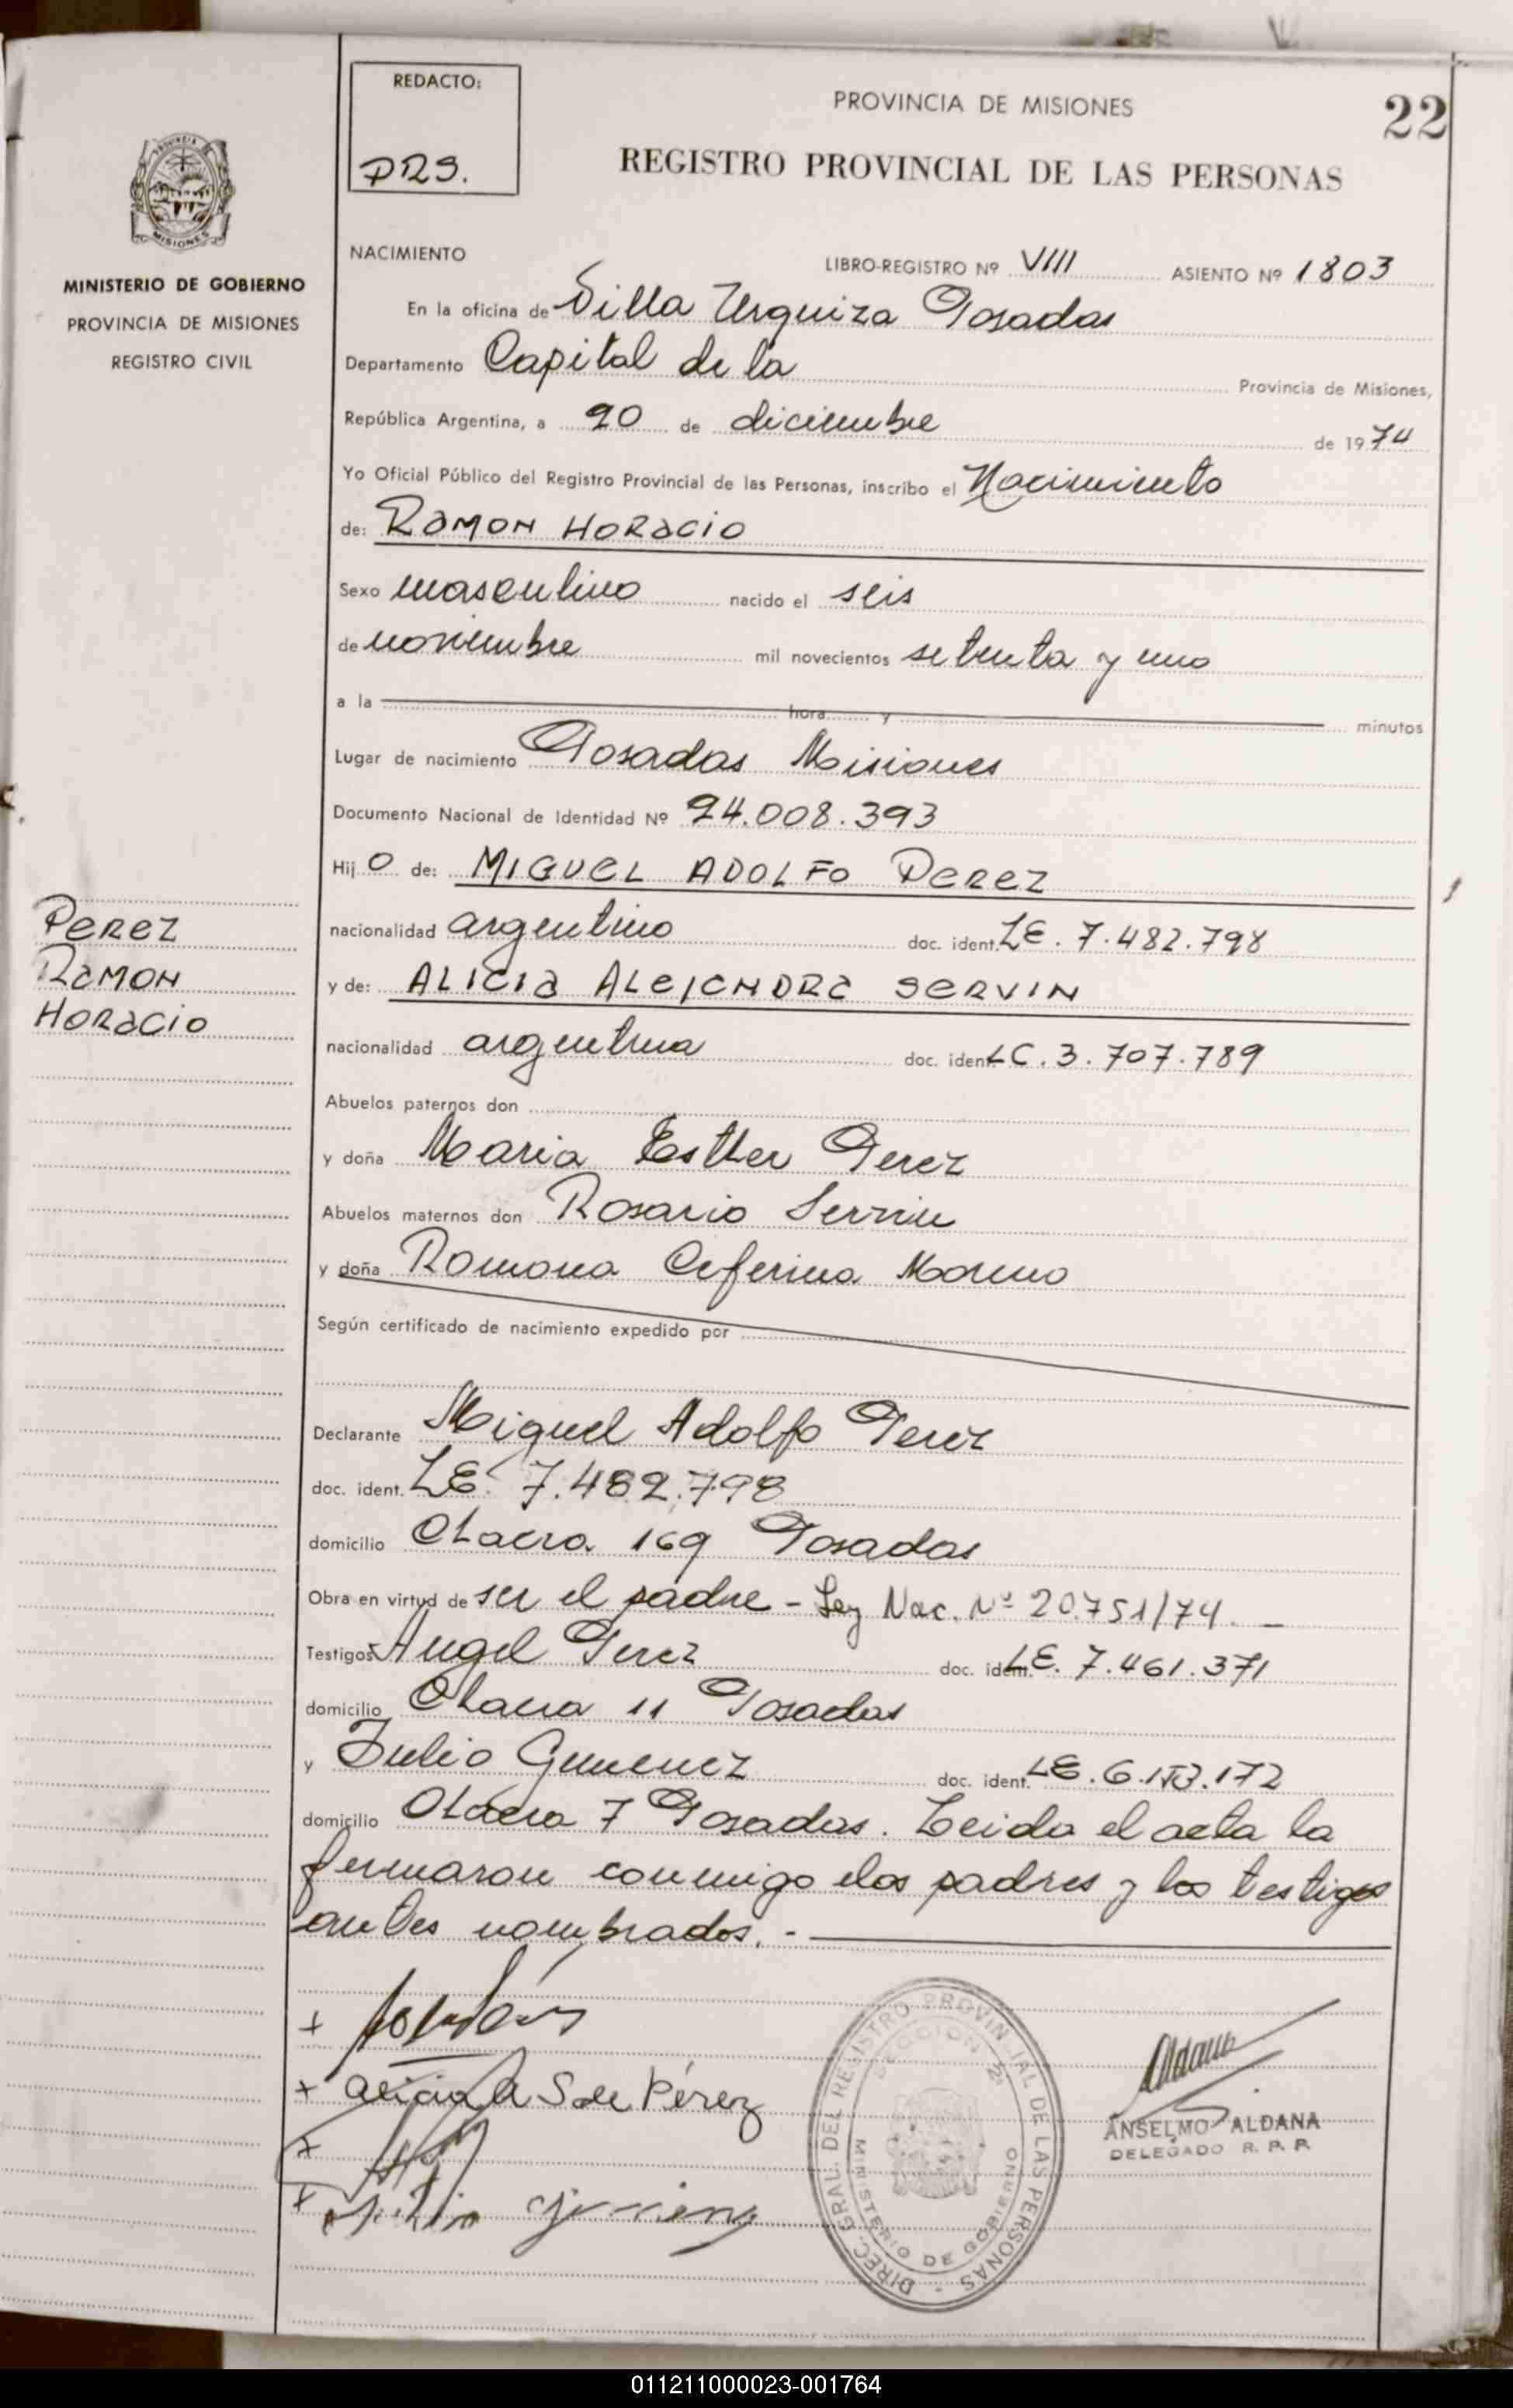 REDACTO:
PRS.
PROVINCIA DE MISIONES
22
REGISTRO PROVINCIAL DE LAS PERSONAS
MISIONES
MINISTERIO DE GOBIERNO
PROVINCIA DE MISIONES
REGISTRO CIVIL
NACIMIENTO
LIBRO-REGISTRO Nº VIII ASIENTO Nº 1803
En la oficina de Villa Urquiza Posadas
Departamento Capital de la Provincia de Misiones,
República Argentina, a 20 de diciembre de 1974
Yo Oficial Público del Registro Provincial de las Personas, inscribo el Nacimiento
de: RAMON HORACIO
Sexo masculino nacido el seis
de noviembre mil novecientos setenta y uno
a la hora y minutos
Lugar de nacimiento Posadas Misiones
Documento Nacional de Identidad Nº 24.008.393
Hijo de: MIGUEL ADOLFO PEREZ
nacionalidad argentino doc. ident. LE. 7.482.798
y de: ALICIA ALEJANDRA SERVIN
nacionalidad argentina doc. ident. LC. 3.707.789
Perez
RAMON
HORACIO
Abuelos paternos don
y doña Maria Esther Perez
Abuelos maternos don Rosario Servin
y doña Romona Ceferina Moreno
Según certificado de nacimiento expedido por
Declarante Miguel Adolfo Perez
doc. ident. LE. 7.482.798
domicilio Chacra 169 Posadas
Obra en virtud de ser el padre - Ley Nac. Nº 20.751/74. -
Testigos Angel Perez doc. ident. LE. 7.461.371
domicilio Chacra 11 Posadas
y Julio Gimenez doc. ident. LE. 6.153.172
domicilio Chacra 7 Posadas. Leida el acta la
firmaron conmigo los padres y los testigos
antes nombrados. -
Alicia A S de Pérez
Julio Jimenez
DIREC. GRAL. DEL REGISTRO PROVINCIAL DE LAS PERSONAS
SECCION
MINISTERIO DE GOBIERNO
Aldana
ANSELMO ALDANA
DELEGADO R. P. P.
011211000023-001764